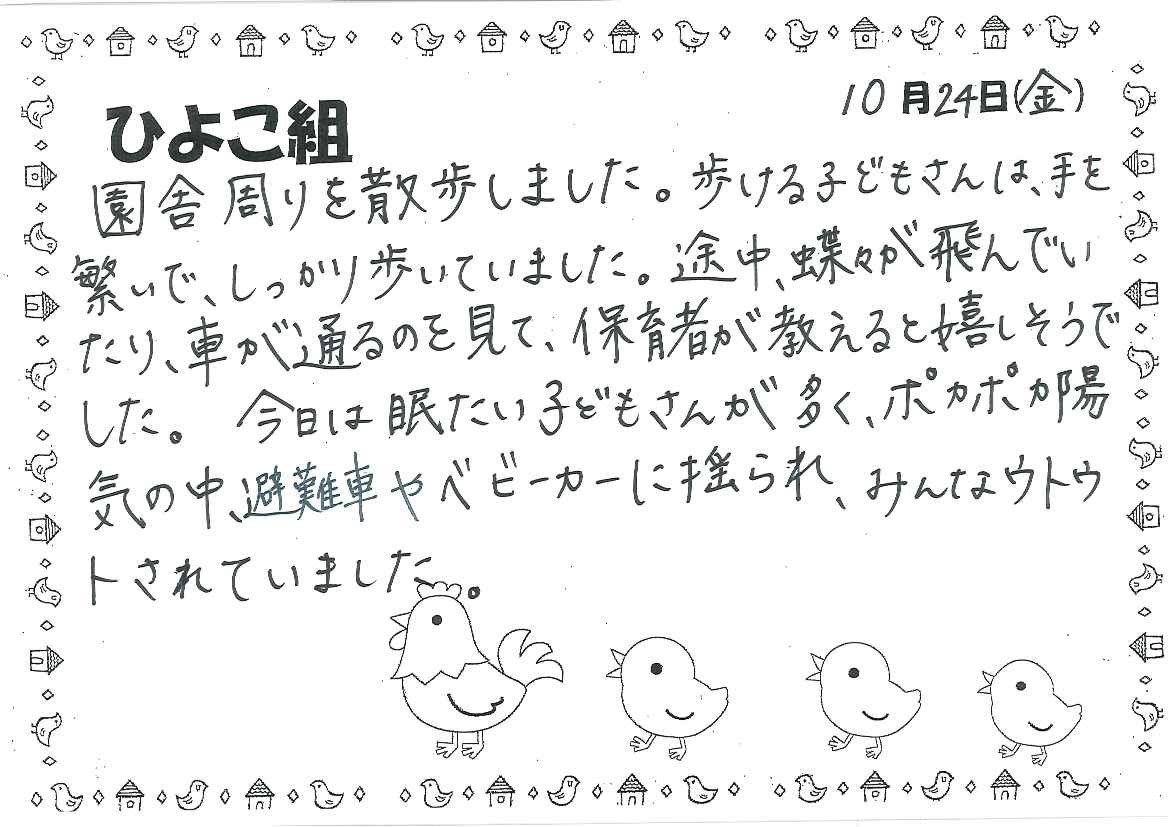 10月24日(金)
ひよこ組
園舎周りを散歩しました。歩ける子どもさんは、手を
繋いで、しっかり歩いていました。途中、蝶々が飛んでい
たり、車が通るのを見て、保育者が教えると嬉しそうで
した。今日は眠たい子どもさんが多く、ポカポカ陽
気の中、避難車やベビーカーに揺られ、みんなウトウ
トされていました。